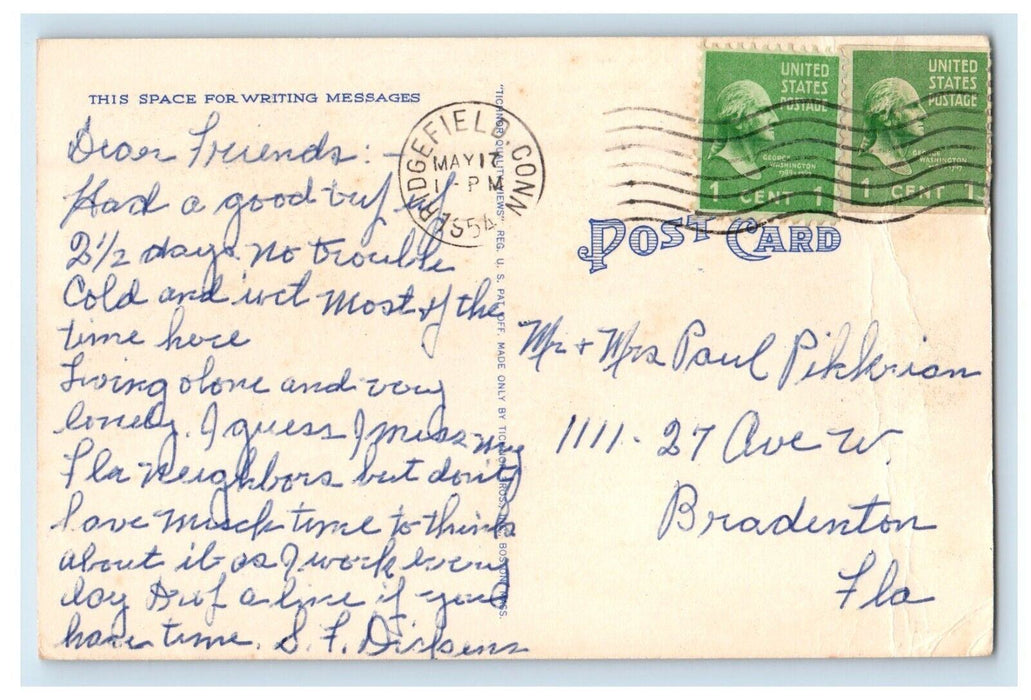 THIS SPACE FOR WRITING MESSAGES
Dear Friends: -
Had a good trip of
2 1/2 days no trouble
Cold and wet most of the
time here
Living alone and very
lonely. I guess I miss my
Fla neighbors but don't
have much time to think
about it as I work every
day Drop a line if you
have time. S. F.
"TICHNOR QUALITY VIEWS" REG. U. S. PAT. OFF. MADE ONLY BY TICHNOR BROS., INC., BOSTON, MASS.
RIDGEFIELD, CONN
MAY 17
1 - PM
1954
UNITED
STATES
POSTAGE
GEORGE
WASHINGTON
1 CENT 1
UNITED
STATES
POSTAGE
GEORGE
WASHINGTON
1 CENT 1
POST CARD
Mr + Mrs Paul
1111 - 27 Ave W.
Bradenton
Fla